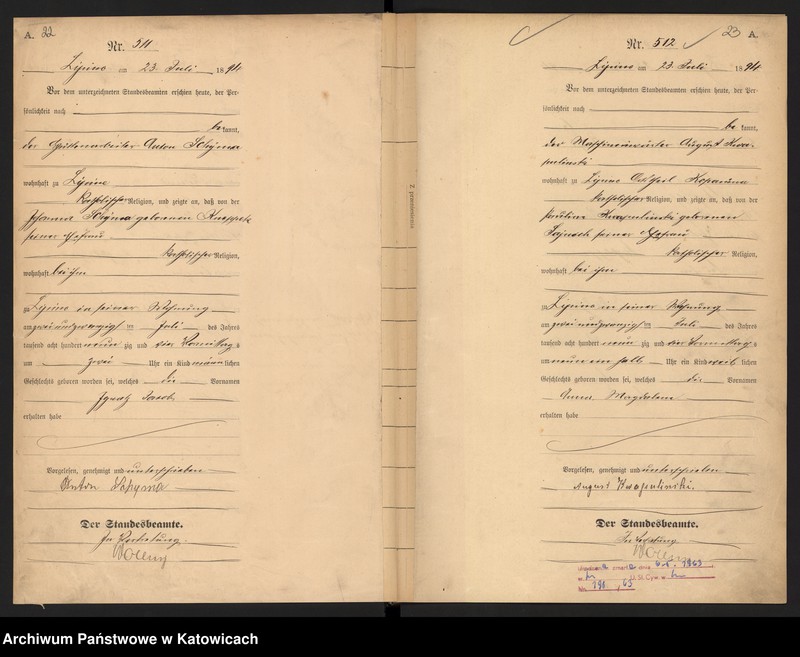 A. 22
Nr. 511
Lipine am 23. Juli 1894
Vor dem unterzeichneten Standesbeamten erschien heute, der Per-
sönlichkeit nach
bekannt,
der Hüttenarbeiter Anton
wohnhaft zu Lipine
katholischer Religion, und zeigte an, daß von der
Johanna geborenen
seiner Ehefrau
katholischer Religion,
wohnhaft bei ihm
zu Lipine in seiner Wohnung
am zwei und zwanzigsten Juli des Jahres
tausend acht hundert neunzig und vier Vormittags
um zwei Uhr ein Kind männlichen
Geschlechts geboren worden sei, welches die Vornamen
Ignatz Jacob
erhalten habe
Vorgelesen, genehmigt und unterschrieben
Anton
Der Standesbeamte.
In Vertretung.
23 A.
Nr. 512
Lipine am 23. Juli 1894
Vor dem unterzeichneten Standesbeamten erschien heute, der Per-
sönlichkeit nach
bekannt,
der Maschinenwärter August Kwa-
pulinski
wohnhaft zu Lipine
katholischer Religion, und zeigte an, daß von der
Pauline Kwapulinski geborenen
seiner Ehefrau
katholischer Religion,
wohnhaft bei ihm
zu Lipine in seiner Wohnung
am zwei und zwanzigsten Juli des Jahres
tausend acht hundert neunzig und vier Vormittags
um neun ein halb Uhr ein Kind weiblichen
Geschlechts geboren worden sei, welches die Vornamen
Anna Magdalena
erhalten habe
Vorgelesen, genehmigt und unterschrieben
August Kwapulinski.
Der Standesbeamte.
In Vertretung
zmarła dnia 1963
U.S.Cyw.
Nr.
Archiwum Państwowe w Katowicach